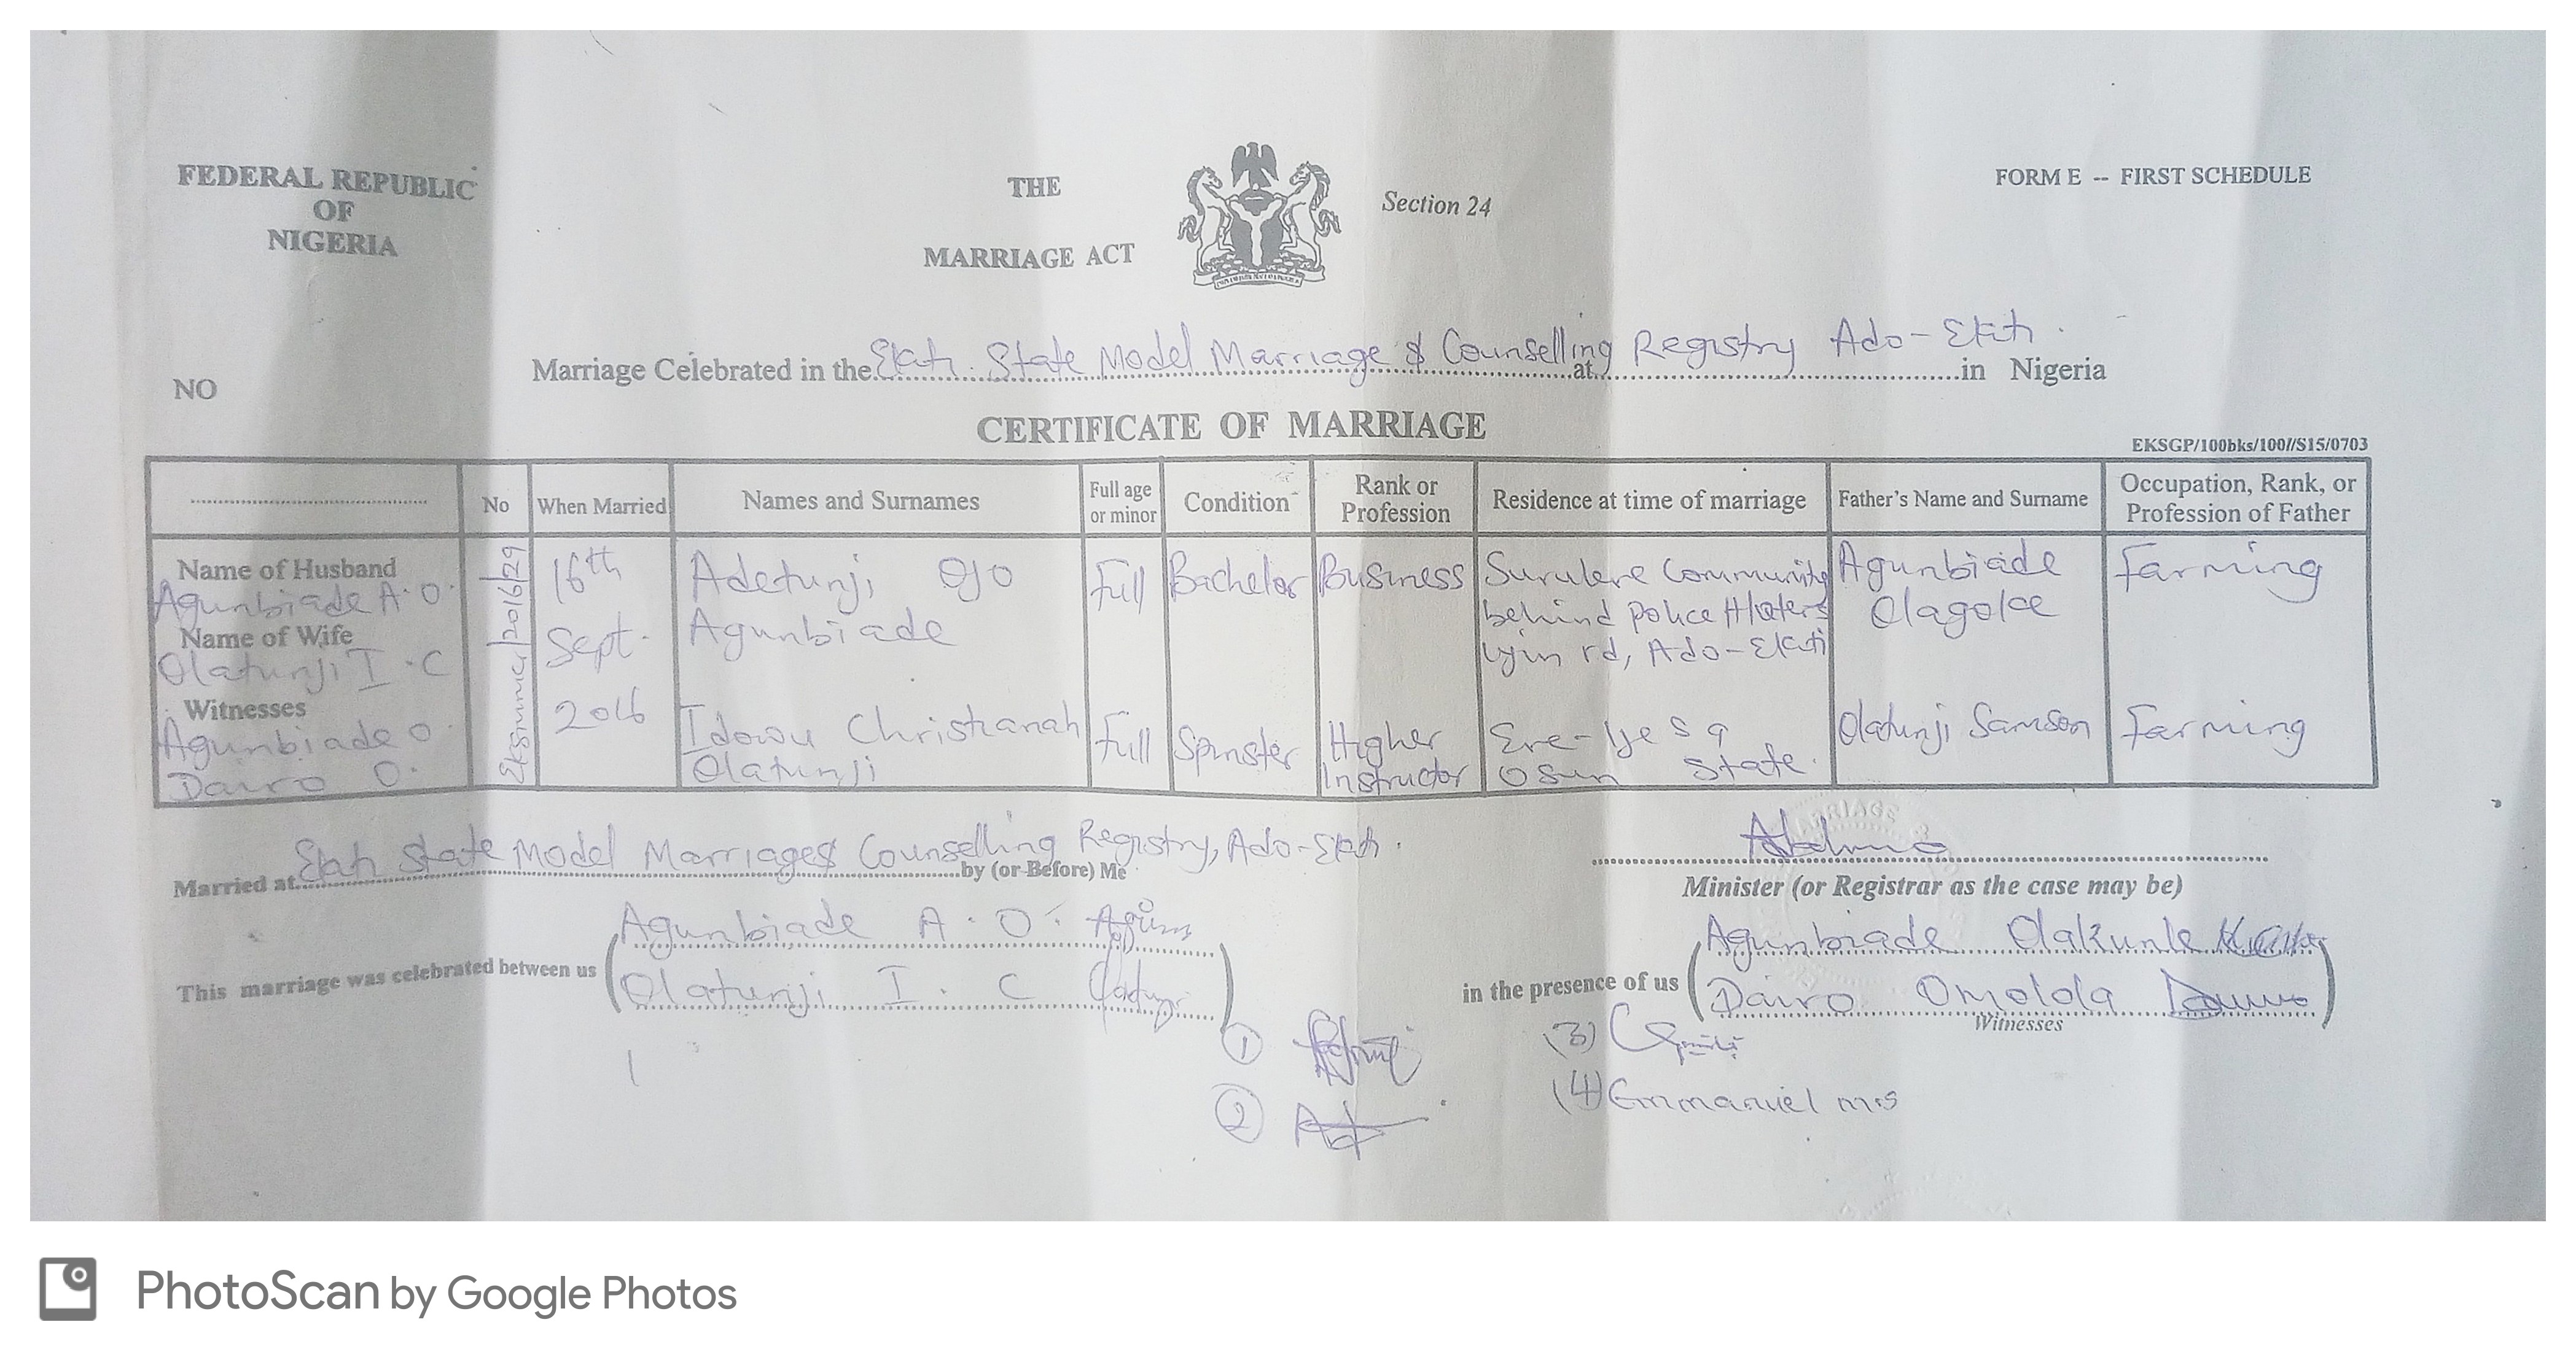 FEDERAL REPUBLIC
OF
NIGERIA
THE
MARRIAGE ACT
Section 24
FORM E -- FIRST SCHEDULE
NO
Marriage Celebrated in the Ekiti State Model Marriage & Counselling at Registry Ado-Ekiti. in Nigeria
CERTIFICATE OF MARRIAGE
EKSGP/100bks/100//S15/0703
No
When Married
Names and Surnames
Full age
or minor
Condition
Rank or
Profession
Residence at time of marriage
Father's Name and Surname
Occupation, Rank, or
Profession of Father
Name of Husband
Agunbiade A.O.
Name of Wife
Olatunji I.C
Witnesses
Agunbiade O.
Dairo O.
2016/29
16th
Sept.
2016
Adetunji Ojo
Agunbiade
Full
Bachelor
Business
Surulere Community
behind police H/Qters
Iyin rd, Ado-Ekiti
Agunbiade
Olagoke
Farming
Idowu Christianah
Olatunji
Full
Spinster
Higher
Instructor
Osun State.
Olatunji Samson
Farming
Married at Ekiti State Model Marriage & Counselling Registry, Ado-Ekiti. by (or Before) Me
Minister (or Registrar as the case may be)
This marriage was celebrated between us
Agunbiade A.O.
Olatunji I.C
in the presence of us
Agunbiade Olakunle
Dairo Omolola
Witnesses
1
2
(3)
(4) Emmanuel m.s
PhotoScan by Google Photos